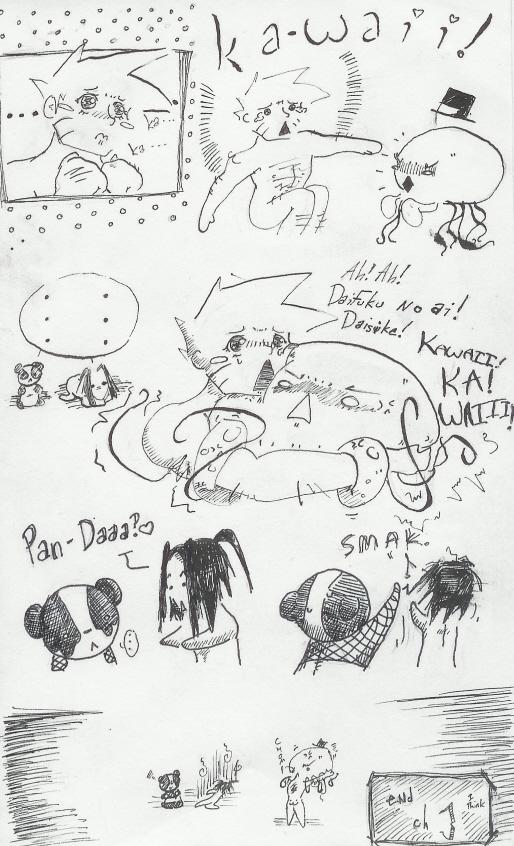 Ka-waii!
ka...
ka...
Ah! Ah!
Daifuku no ai!
Daisuke!
KAWAII!
KA!
WAIII!
Pan-Daaa?♡
SMAK.
end
ch
I think